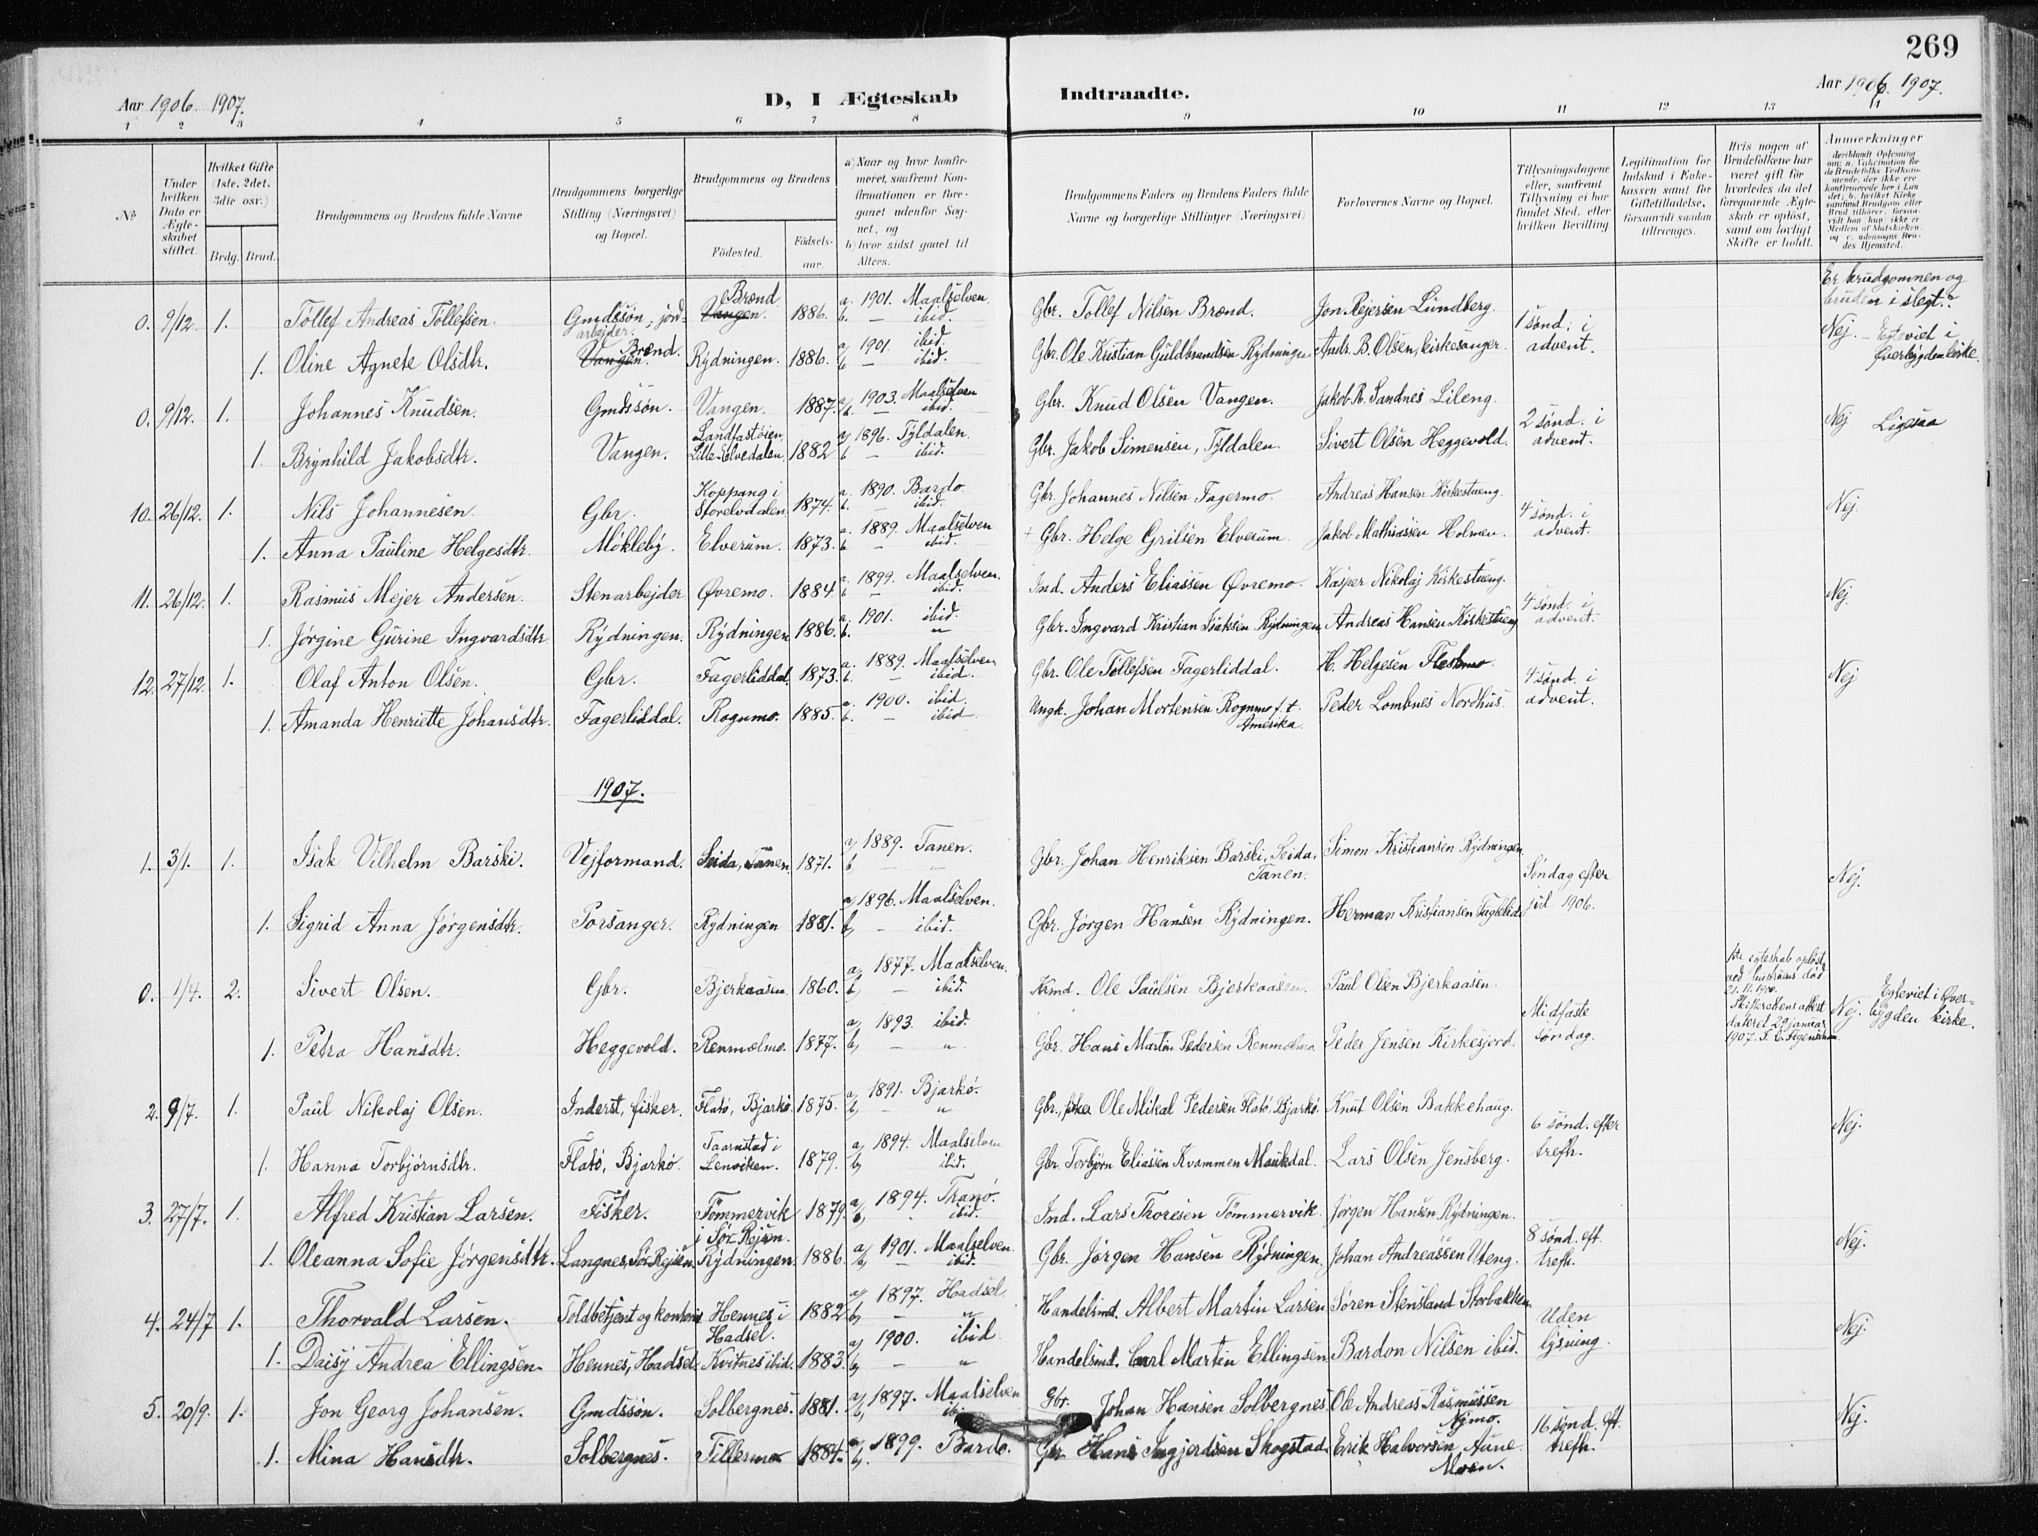 269
Aar 1906. 1907.
D, I Ægteskab
Indtraadte.
Aar 1906 1907.
1 2 3 4 5 6 7 8 9 10 11 12 13 14
No
Under hvilken Dato er Ægteskabet stiftet.
Hvilket Gifte (1ste, 2det, 3die osv.)
Brdg. Brud.
Brudgommens og Brudens fulde Navne
Brudgommens borgerlige Stilling (Næringsvei) og Bopæl.
Brudgommens og Brudens
Födested.
Födselsaar.
a) Naar og hvor konfirmeret, saafremt Konfirmationen er foregaaet udenfor Sognet, og
b) hvor sidst gaaet til Alters.
Brudgommens Faders og Brudens Faders fulde Navne og borgerlige Stillinger (Næringsvei)
Forlovernes Navne og Bopæl.
Tillysningsdagene eller, saafremt Tillysning ei har fundet Sted, efter hvilken Bevilling.
Legitimation for Indskud i Enkekassen samt for Giftetilladelse, forsaavidt saadan tiltrænges.
Hvis nogen af Brudefolkene har været gift för hvorledes da det foregaaende Ægteskab er oplöst, samt om lovligt Skifte er holdt.
Anmerkninger
Er brudgommen og bruden i slegt?
0. 9/12. 1. Tollef Andreas Tollefsen. Gmdssøn, jordarbejder. Vangen. Brænd 1886. a. 1901. Maalselven. b. — ibid. Gbr. Tollef Nilsen Brænd. Jon Rejersen Lundberg. 1 sønd. i advent. Nej. — Egteviet i Øverbygden kirke.
1. Oline Agnete Olsdtr. Vangen. Brænd. Rydningen. 1886. a. 1901. ibid. b. — ibid. Gbr. Ole Kristian Guldbrandsen Rydningen Andr. B. Olsen, kirkesanger.
0. 9/12. 1. Johannes Knudsen. Gmdssøn. Vangen. 1887. a. 1903. Maalselven b. — ibid. Gbr. Knud Olsen Vangen. Jakob R. Sandnes Lileng. 2 sønd. i advent. Nej Ligesaa
1. Brynhild Jakobsdtr. Vangen. Landfastøien, Lille-Elvedalen. 1882 a. 1896. Tyldalen. b. — ibid. Gbr. Jakob Simensen, Tyldalen. Sivert Olsen Heggevold.
10. 26/12. 1. Nils Johannesen. Gbr. Koppang i Storelvdalen 1874. a. 1890. Bardo b. — ibid. Gbr. Johannes Nilsen Fagermo. Andreas Hansen Kirkestueng. 4 sønd. i advent. Nej.
1. Anna Pauline Helgesdtr. Møkleby. Elverum. 1873. a. 1889. Maalselven b. — ibid. + Gbr. Helge Grilsen Elverum. Jakob Mathiassen Holmen.
11. 26/12. 1. Rasmus Mejer Andersen. Stenarbejder Øvremo. 1884 a. 1899. Maalselven. b. — ibid. Ind. Anders Eliassen Øvremo. Kasper Nikolaj Kirkestueng. 4 sønd. i advent. Nej.
1. Jørgine Gurine Ingvardsdtr Rydningen. Rydningen 1886. a. 1901. ibid. b. — " Gbr. Ingvard Kristian Isaksen Rydningen, Andreas Hansen Kirkestueng
12. 27/12. 1. Olaf Anton Olsen. Gbr. Fagerliddal. 1873. a. 1889. Maalselven b. — ibid. Gbr. Ole Tollefsen Fagerliddal. H. Helgesen Fleskmo. 4 sønd. i advent. Nej
1. Amanda Henriette Johansdtr. Fagerliddal. Rognmo. 1885. a. 1900. ibid. b. — ibid Ungk. Johan Mortensen Rognmo f. t. Amerika. Peder Lombnes Nordhus.
1907.
1. 3/1. 1. Isak Vilhelm Barski. Vejformand. Seida, Tanen. 1871. a) 1889. Tanen. b — " Gbr. Johan Henriksen Barski, Seida, Tanen. Simon Kristiansen Rydningen Søndag efter jul 1906. Nej.
1. Sigrid Anna Jørgensdtr. Porsanger. Rydningen 1881. a) 1896. Maalselven. b) — ibid. Gbr. Jørgen Hansen Rydningen. Herman Kristiansen Faglelid
0. 1/4. 2. Sivert Olsen. Gbr. Bjerkaasen 1860. a) 1877. Maalselven. b) — ibid. Kmd. Ole Paulsen Bjerkaasen. Paul Olsen Bjerkaasen. Midfaste søndag. 1ste egteskab opløst ved hustruens død 21.11.1900. Skifterettens attest dateret 29 januar 1907. Nej. Egteviet i Øverbygden kirke.
1. Petra Hansdtr. Heggevold. Renmælmo. 1877. a) 1893. ibid. b) — " Gbr. Hans Martin Pedersen Renmælmo Peder Jensen Kirkesjord.
2. 9/7. 1. Paul Nikolaj Olsen. Inderst, fisker. Flatø, Bjarkø 1875. a) 1891. Bjarkø. b) — " Gbr., fisker Ole Mikal Pedersen Flatø, Bjarkø. Knut Olsen Bakkehaug. 6 sønd. efter trefh. Nej.
1. Hanna Torbjørnsdtr. Flatø, Bjarkø. Taarnstad i Lenviken. 1879. a) 1894. Maalselven b) ibid. Gbr. Torbjørn Eliassen Kvammen Maukdal. Lars Olsen Jensberg.
3. 27/7. 1. Alfred Kristian Larsen. Fisker. Tømmervik i Sør-Rejsen. 1879. a) 1894. Tranø. b) ibid. Ind. Lars Thoresen Tømmervik. Jørgen Hansen Rydningen. 8 sønd. eft. trefh. Nej.
1. Oleanna Sofie Jørgensdtr. Langnes, Sør-Rejsen. Rydningen. 1886. a) 1901. Maalselven. b) — ibid. Gbr. Jørgen Hansen Rydningen. Johan Andreassen Uteng.
4. 24/7 1. Thorvald Larsen. Toldbetjent og kontorist Hennes i Hadsel. 1882 a) 1897. Hadsel. b) — " Handelsmd. Albert Martin Larsen Søren Stensland Storbakken. Uden lysning. Nej.
1. Daisy Andrea Ellingsen. Hennes, Hadsel Kvitnes ibid. 1883. a) 1900. ibid b) — " Handelsmd. Carl Martin Ellingsen Bardon Nilsen ibid.
5. 20/9. 1. Jon Georg Johansen. Gmdssøn. Solbergnes. 1881. a) 1897. Maalselven Gbr. Johan Hansen Solbergnes. Ole Andreas Rasmussen Nymo. 16 sønd. eft. trefh. Nej.
1. Mina Hansdtr. Solbergnes. Tillermo 1884. a) 1899. Bardo. Gbr. Hans Ingjerdsen Skogstad. Erik Halvorsen Aune Moen.